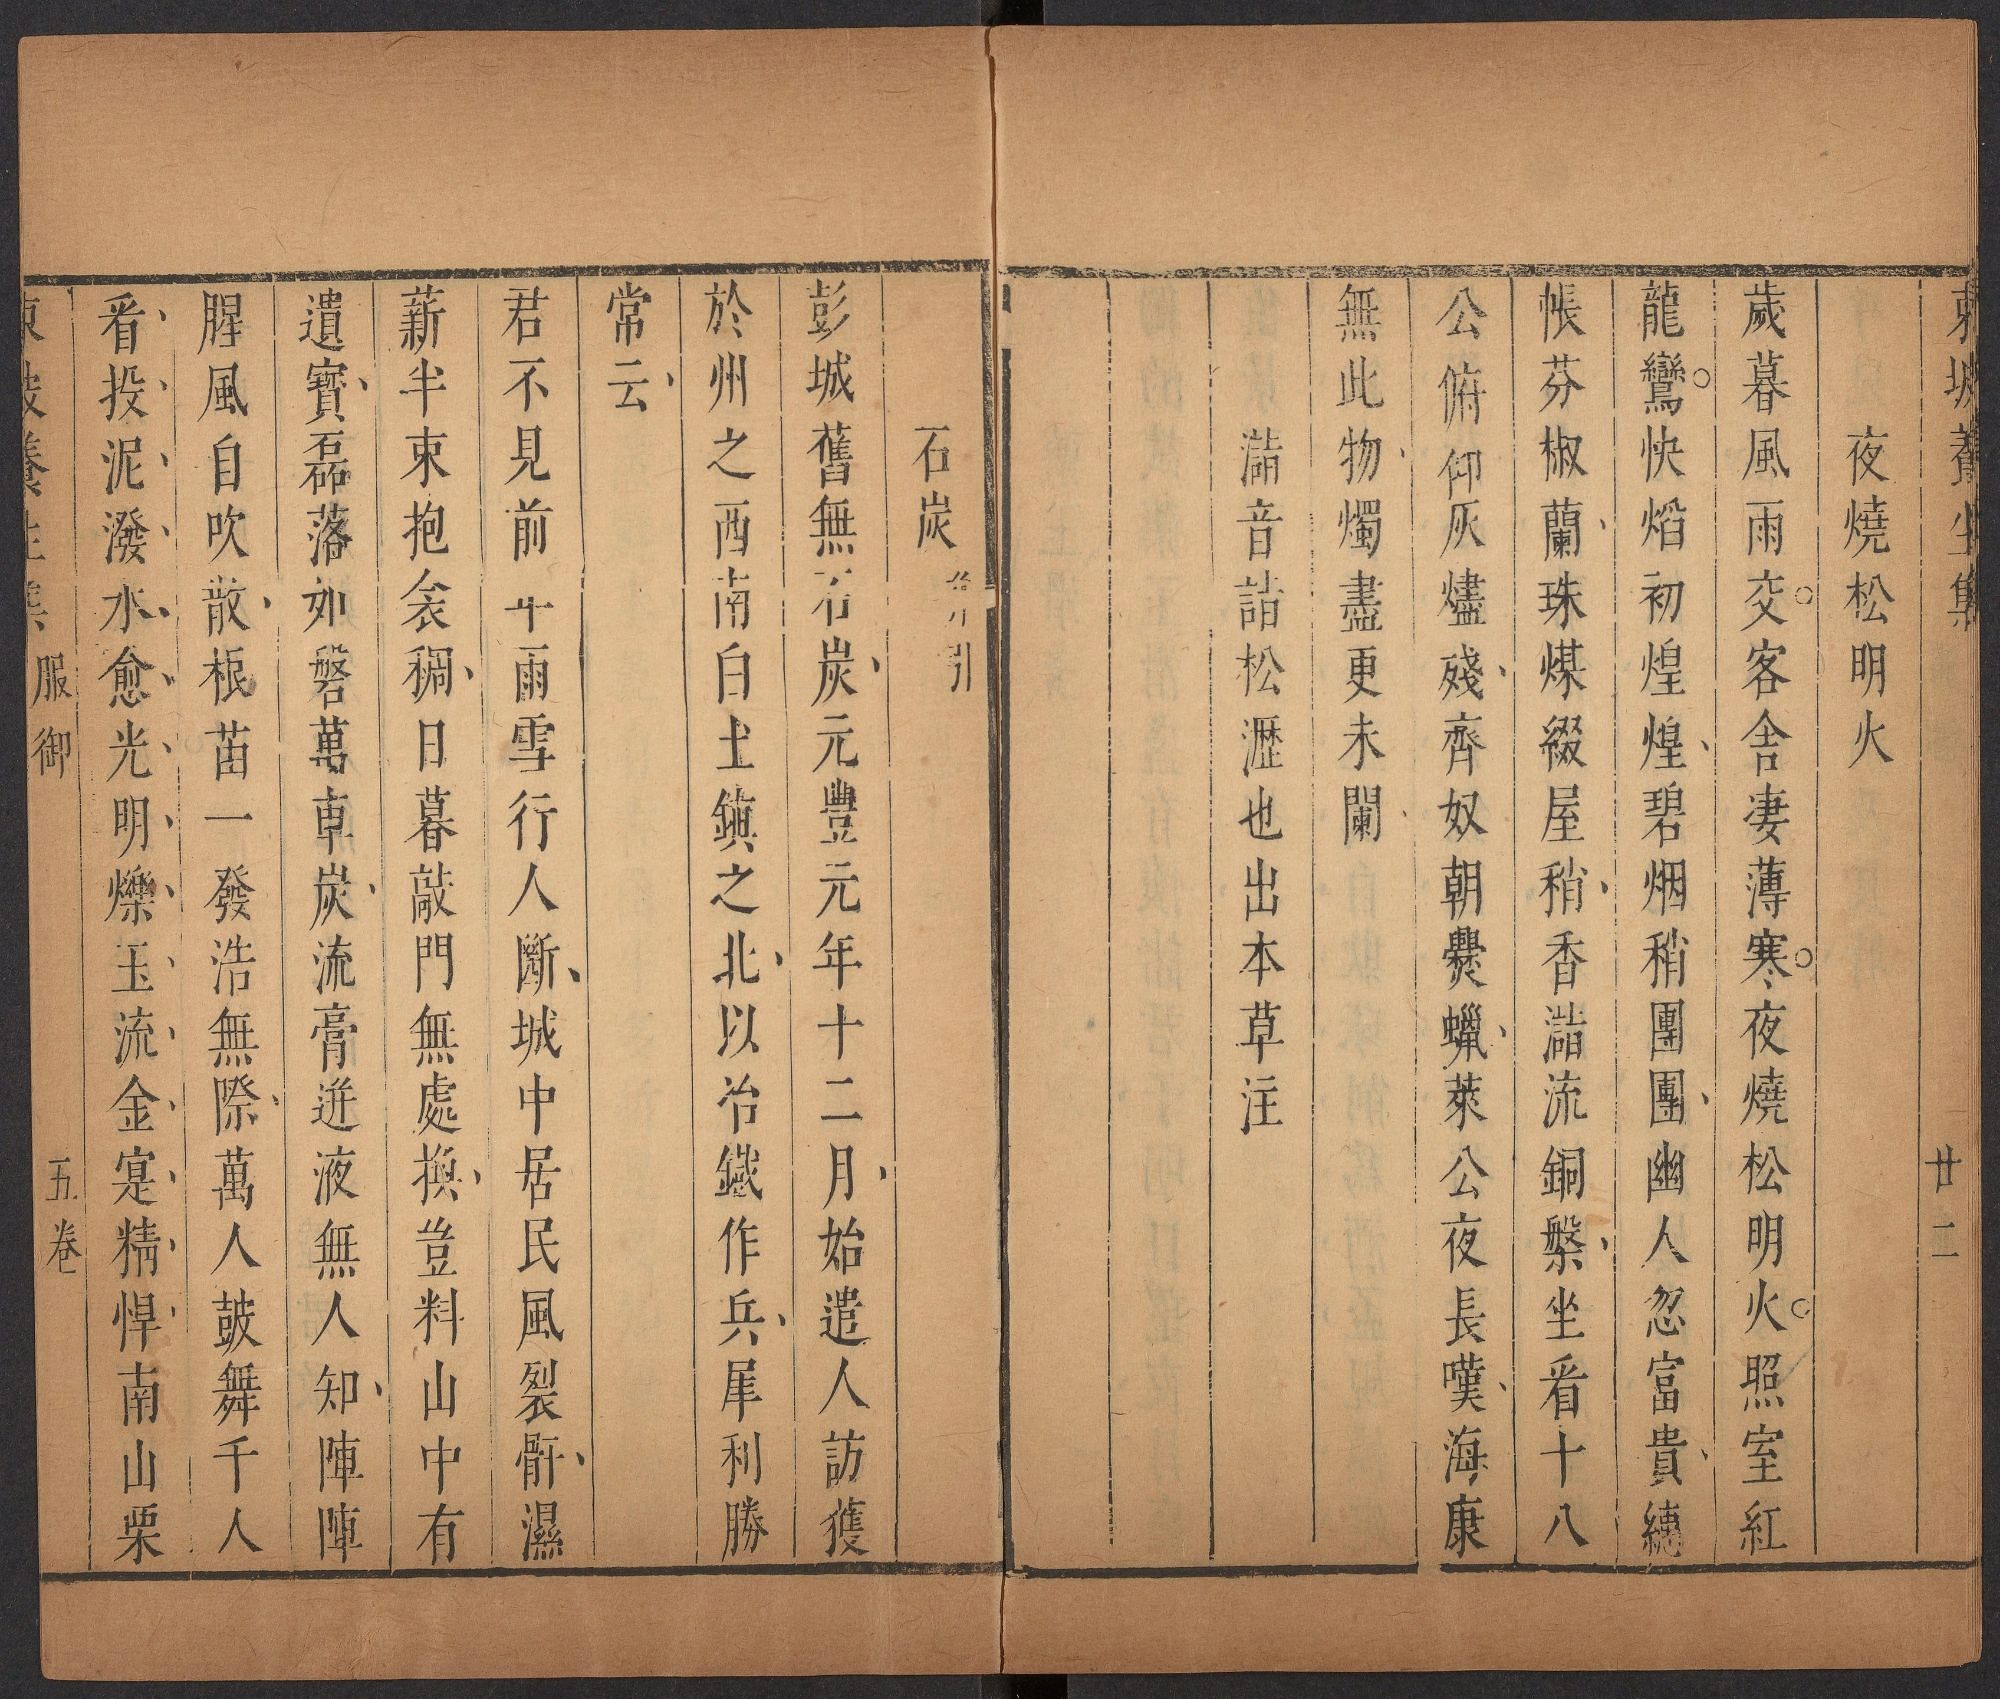 東坡養生集
廿二
夜燒松明火
歲暮風雨交客舍凄薄寒夜燒松明火照室紅
龍鸞快焰初煌煌碧烟稍團團幽人忽富貴繐
帳芬椒蘭珠煤綴屋稍香㵽流銅槃坐看十八
公俯仰灰燼殘齊奴朝爨蠟萊公夜長嘆海康
無此物燭盡更未闌
㵽音詣松瀝也出本草注
石炭
彭城舊無石炭元豐元年十二月始遣人訪獲
於州之西南白土鎮之北以冶鐵作兵犀利勝
常云
君不見前年雨雪行人斷城中居民風裂骭濕
薪半束抱衾裯日暮敲門無處換豈料山中有
遺寶磊落如磐萬車炭流膏迸液無人知陣陣
腥風自吹散根苗一發浩無際萬人鼓舞千人
看投泥潑水愈光明爍玉流金寔精悍南山栗
東坡養生集 服御
五卷